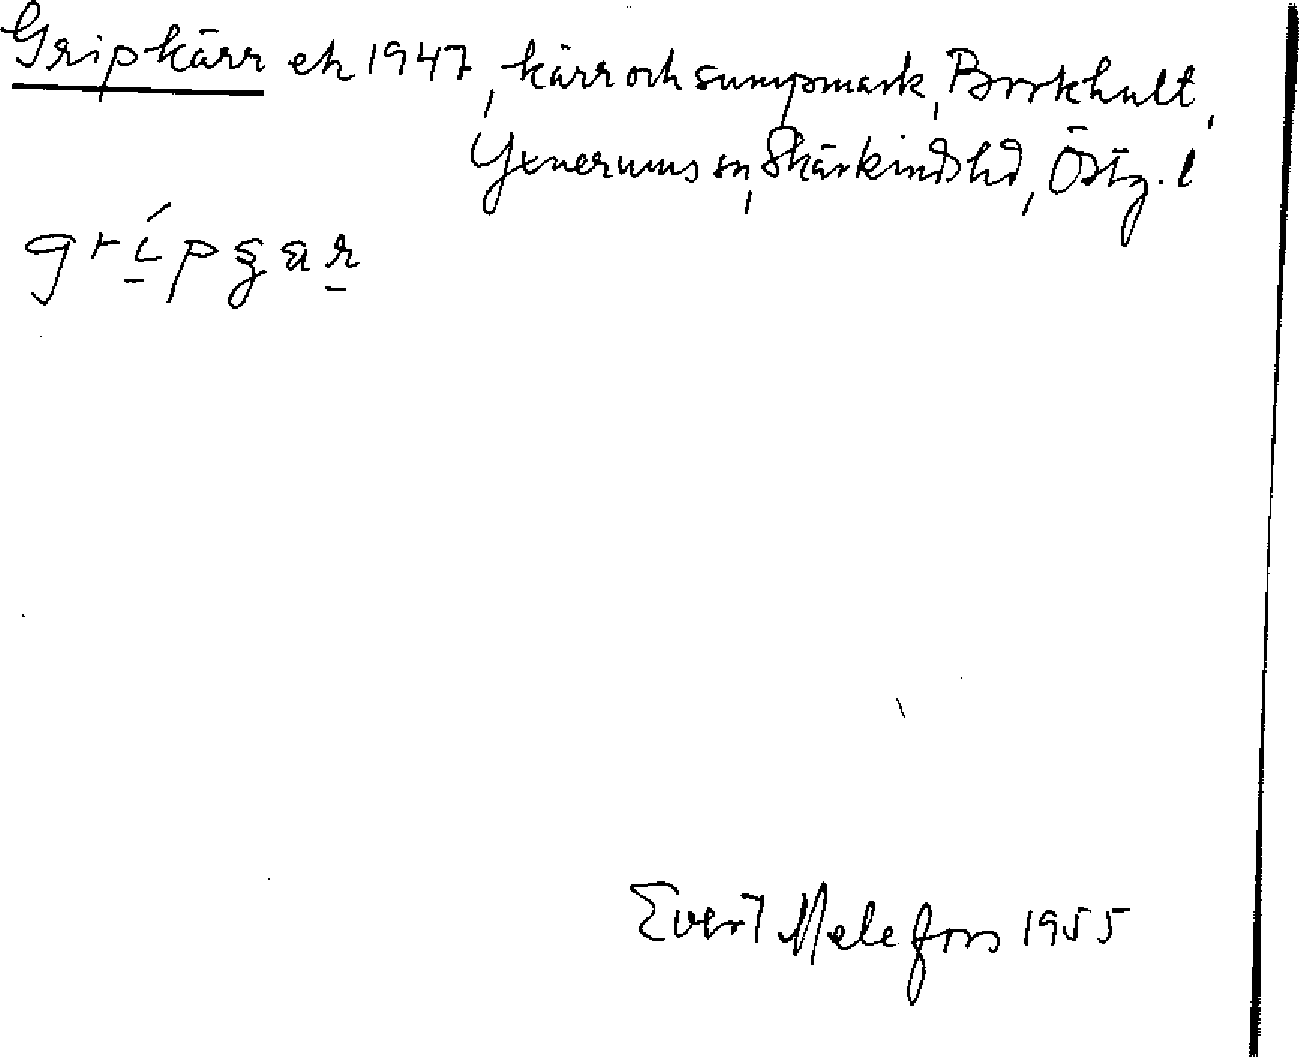 Gripkärr ek 1947, kärr och sumpmark, Borkhult,
Yxnerums sn, Skärkinds hd, Östg. l
Evert Melefors 1955